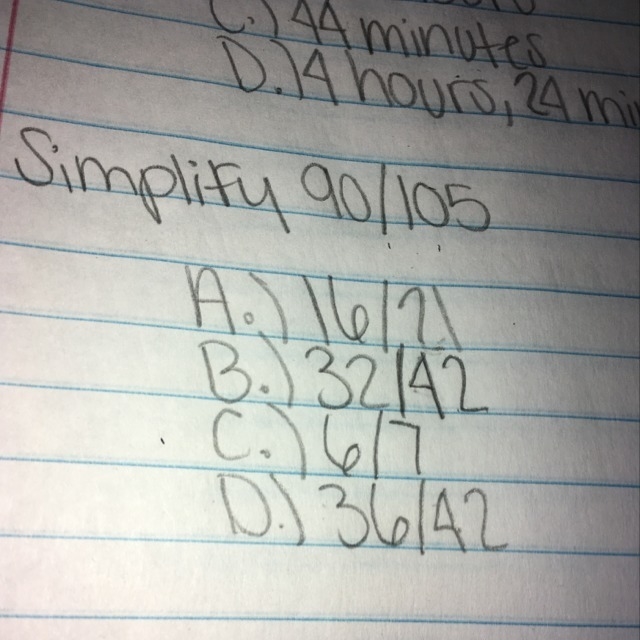 C.) 44 minutes
D.) 4 hours, 24 min
Simplify 90/105
A.) 16/21
B.) 32/42
C.) 6/7
D.) 36/42